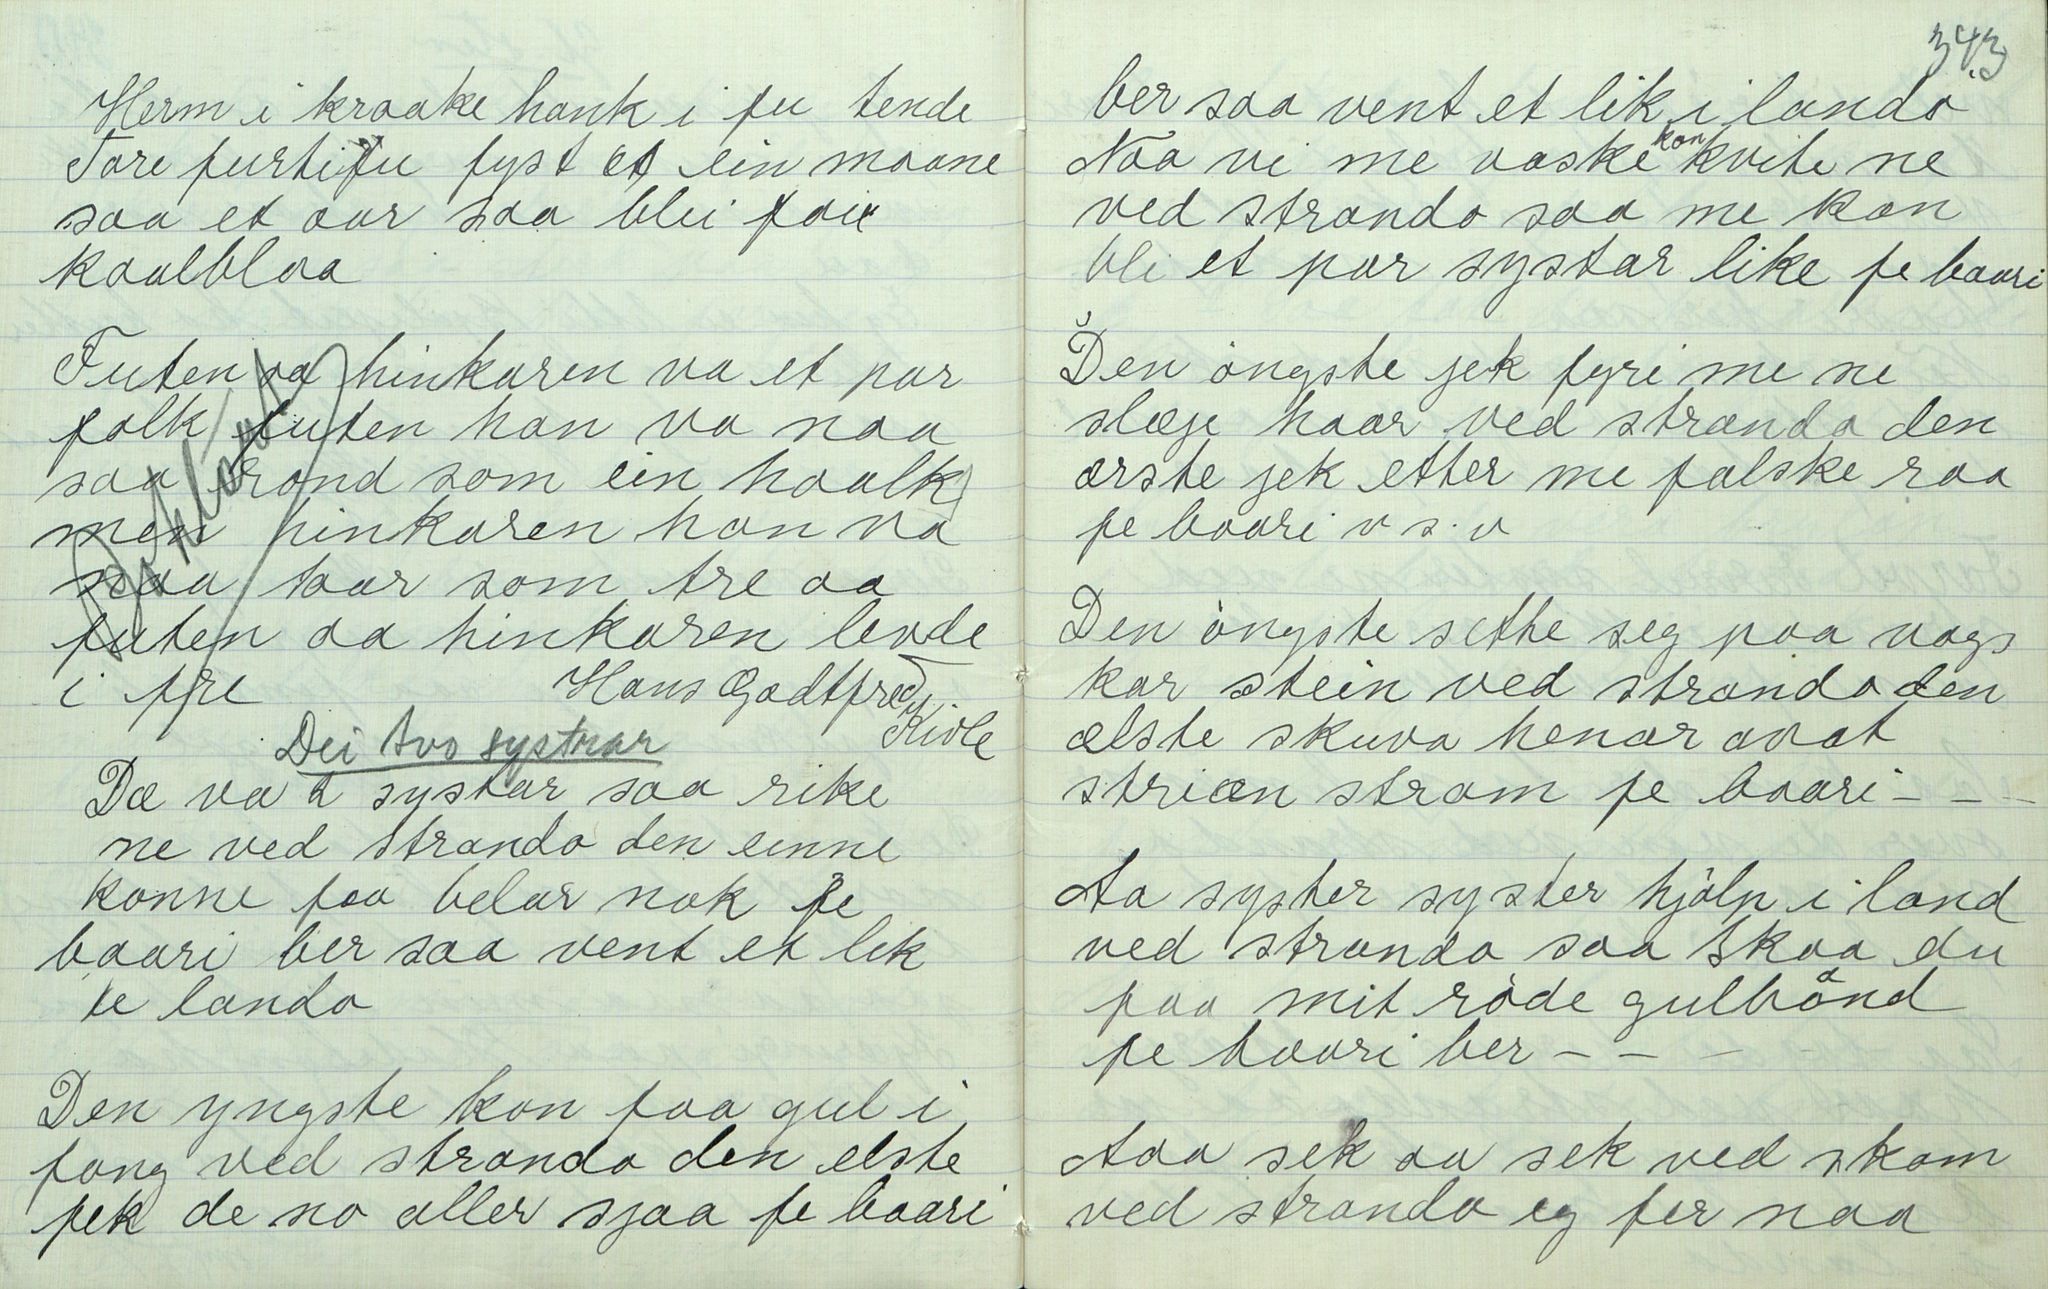 Herm i kraake hank i fu tende
Tore furtifu fyst et ein maane
saa et aar saa blei faii
kaalblaa
Futen aa hinkaren va et par
folk futen han va naa
saa trond som ein haalk
men hinkaren han va
naa taar som tre aa
futen aa hinkaren levde
i fre Hans Godtfred
Kivle
Dei tvo systrar
Dæ va 2 systar saa rike
ne ved strando den einne
konne faa belar nok fe
baari ber saa vent et lik
te lando
Den yngste kan faa gul i
fang ved strando den elste
fek de no aller sjaa fe baari
343
ber saa vent et lik i lando
Naa vi me vaske kan kvite ne
ved strando saa me kan
bli et par systar like fe baari
Den òngste jek fyri me ne
slæje haar ved strando den
ærste jek etter me falske raa
fe baari o s. v
Den òngste sette seg paa vags
kar stein ved strando den
ælste skuva henar avat
striæn stram fe baari - - -
Aa syster syster hjålp i land
ved strando saa skaa du
faa mit ròde gulbånd
fe baari ber - - - -
Aaa sek aa sek ved skam
ved strando eg fer naa